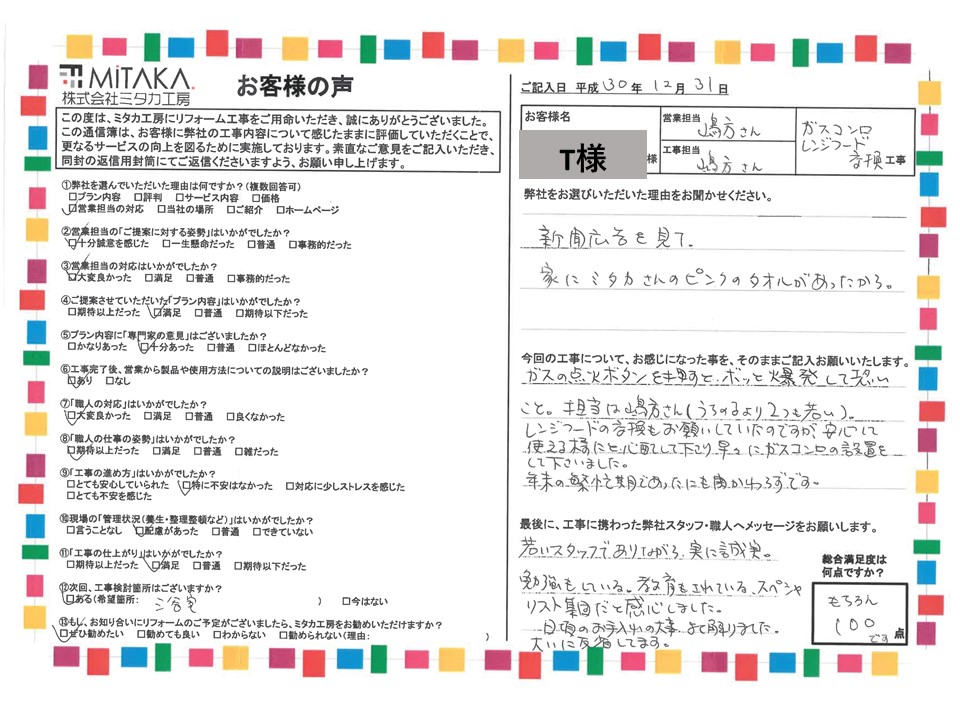 MiTAKA.
株式会社ミタカ工房
お客様の声
この度は、ミタカ工房にリフォーム工事をご用命いただき、誠にありがとうございました。
この通信簿は、お客様に弊社の工事内容について感じたままに評価していただくことで、
更なるサービスの向上を図るために実施しております。素直なご意見をご記入いただき、
同封の返信用封筒にてご返信くださいますよう、お願い申し上げます。
①弊社を選んでいただいた理由は何ですか？(複数回答可)
□プラン内容 □評判 □サービス内容 □価格
□営業担当の対応 □当社の場所 □ご紹介 □ホームページ
②営業担当の「ご提案に対する姿勢」はいかがでしたか？
□十分誠意を感じた □一生懸命だった □普通 □事務的だった
③営業担当の対応はいかがでしたか？
□大変良かった □満足 □普通 □事務的だった
④ご提案させていただいた「プラン内容」はいかがでしたか？
□期待以上だった □満足 □普通 □期待以下だった
⑤プラン内容に「専門家の意見」はございましたか？
□かなりあった □十分あった □普通 □ほとんどなかった
⑥工事完了後、営業から製品や使用方法についての説明はございましたか？
□あり □なし
⑦「職人の対応」はいかがでしたか？
□大変良かった □満足 □普通 □良くなかった
⑧「職人の仕事の姿勢」はいかがでしたか？
□期待以上だった □満足 □普通 □雑だった
⑨「工事の進め方」はいかがでしたか？
□とても安心していられた □特に不安はなかった □対応に少しストレスを感じた
□とても不安を感じた
⑩現場の「管理状況(養生・整理整頓など)」はいかがでしたか？
□言うことなし □配慮があった □普通 □できていない
⑪「工事の仕上がり」はいかがでしたか？
□期待以上だった □満足 □普通 □期待以下だった
⑫次回、工事検討箇所はございますか？
□ある(希望箇所: 浴室 ) □今はない
⑬もし、お知り合いにリフォームのご予定がございましたら、ミタカ工房をお勧めいただけますか？
□ぜひ勧めたい □勧めても良い □わからない □勧められない(理由: )
ご記入日 平成 30年 12月 31日
お客様名
T様
様
営業担当
嶋方さん
工事担当
嶋方さん
ガスコンロ
レンジフード
交換工事
弊社をお選びいただいた理由をお聞かせください。
新聞広告を見て。
家にミタカさんのピンクのタオルがあったから。
今回の工事について、お感じになった事を、そのままご記入お願いいたします。
ガスの点火ボタンを押すと ボッと爆発して恐い
こと。担当は嶋方さん(うちのるより2つも若い)。
レンジフードの交換もお願いしていたのですが 安心して
使える様にと心配して下さり早々にガスコンロの設置を
して下さいました。
年末の繁忙期であったにも関かわらずです。
最後に、工事に携わった弊社スタッフ・職人へメッセージをお願いします。
若いスタッフでありながら、実に誠実。
勉強もしている。教育もされている、スペシャ
リスト集団だと感心しました。
日頃のお手入れの大事、よく解りました。
大いに反省してます。
総合満足度は
何点ですか？
もちろん
100
です 点